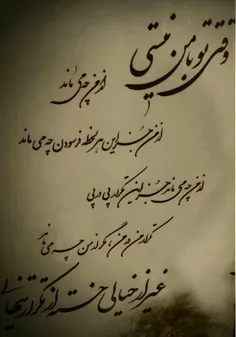 وقتی تو با من نیستی
از من چه می ماند
از من جز این هر لحظه فرسودن چه می ماند
از من چه می ماند جز این تکرار پی در پی
تکرار من در من، مگر از من چه می ماند
غیر از خیالی خسته از تکرار تنهایی